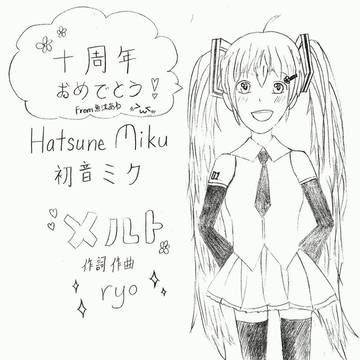 十周年
おめでとう!
From
Hatsune Miku
初音ミク
メルト
作詞 作曲
ryo
01